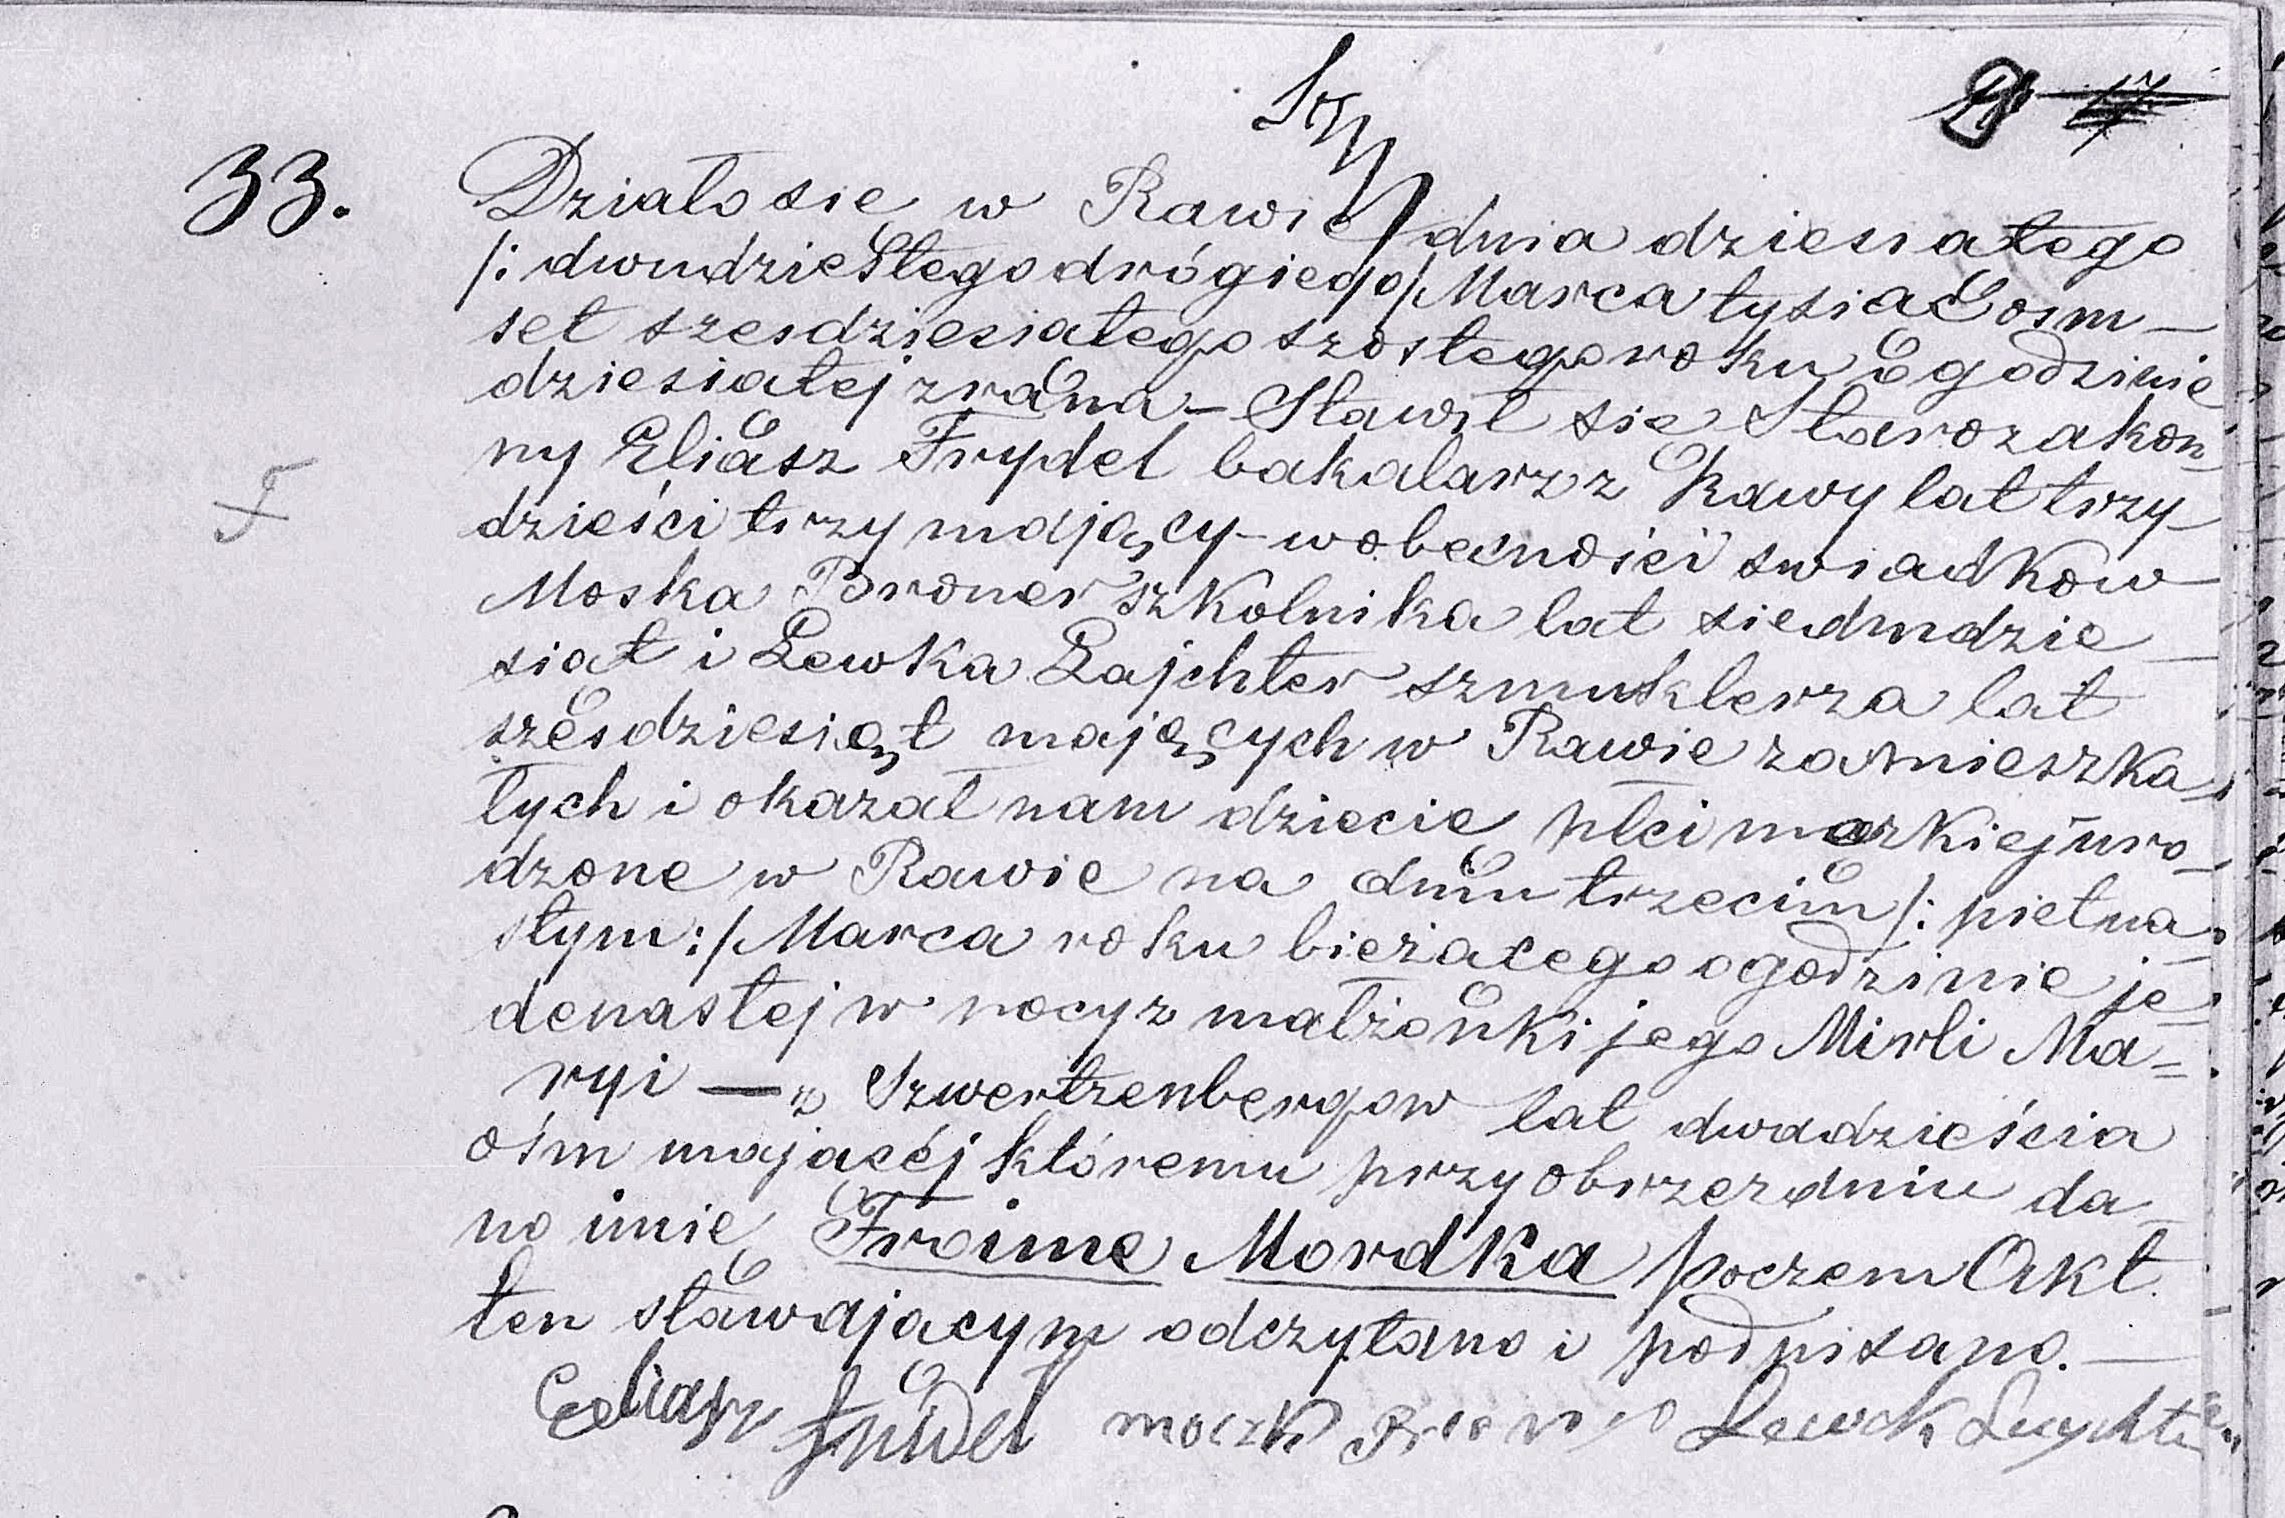 33.
Działo sie w Rawie dnia dziesiatego
/: dwudziestego drógiego/ Marca tysiac osm–
set szesdziesiatego szostego roku o godzinie
dziesiatej zrana – Stawił sie Starozakon
ny Eliasz Frydel bakalarz z Rawy lat trzy–
dzieści trzy mający – w obecnosci swiadkow
Moska Broner szkolnika lat siedmdzie–
siat i Lewka Lajchter szmuklerza lat
szesdziesiąt mających w Rawie zamieszka
łych i okazał nam dziecie płci mezkiej uro–
dzone w Rawie na dniu trzecim /: pietna
stym :/ Marca roku bieżacego o godzinie je–
denastej w nocy z małżonki jego Mirli Ma=
ryi — z Szwertzenbergow lat dwadzieścia
ośm majacéj któremu przy obrzezaniu da–
no imie Froime Mordka poczem Akt
ten stawajacym odczytano i podpisano. —
Eliasz Fridel Moszk Lewek